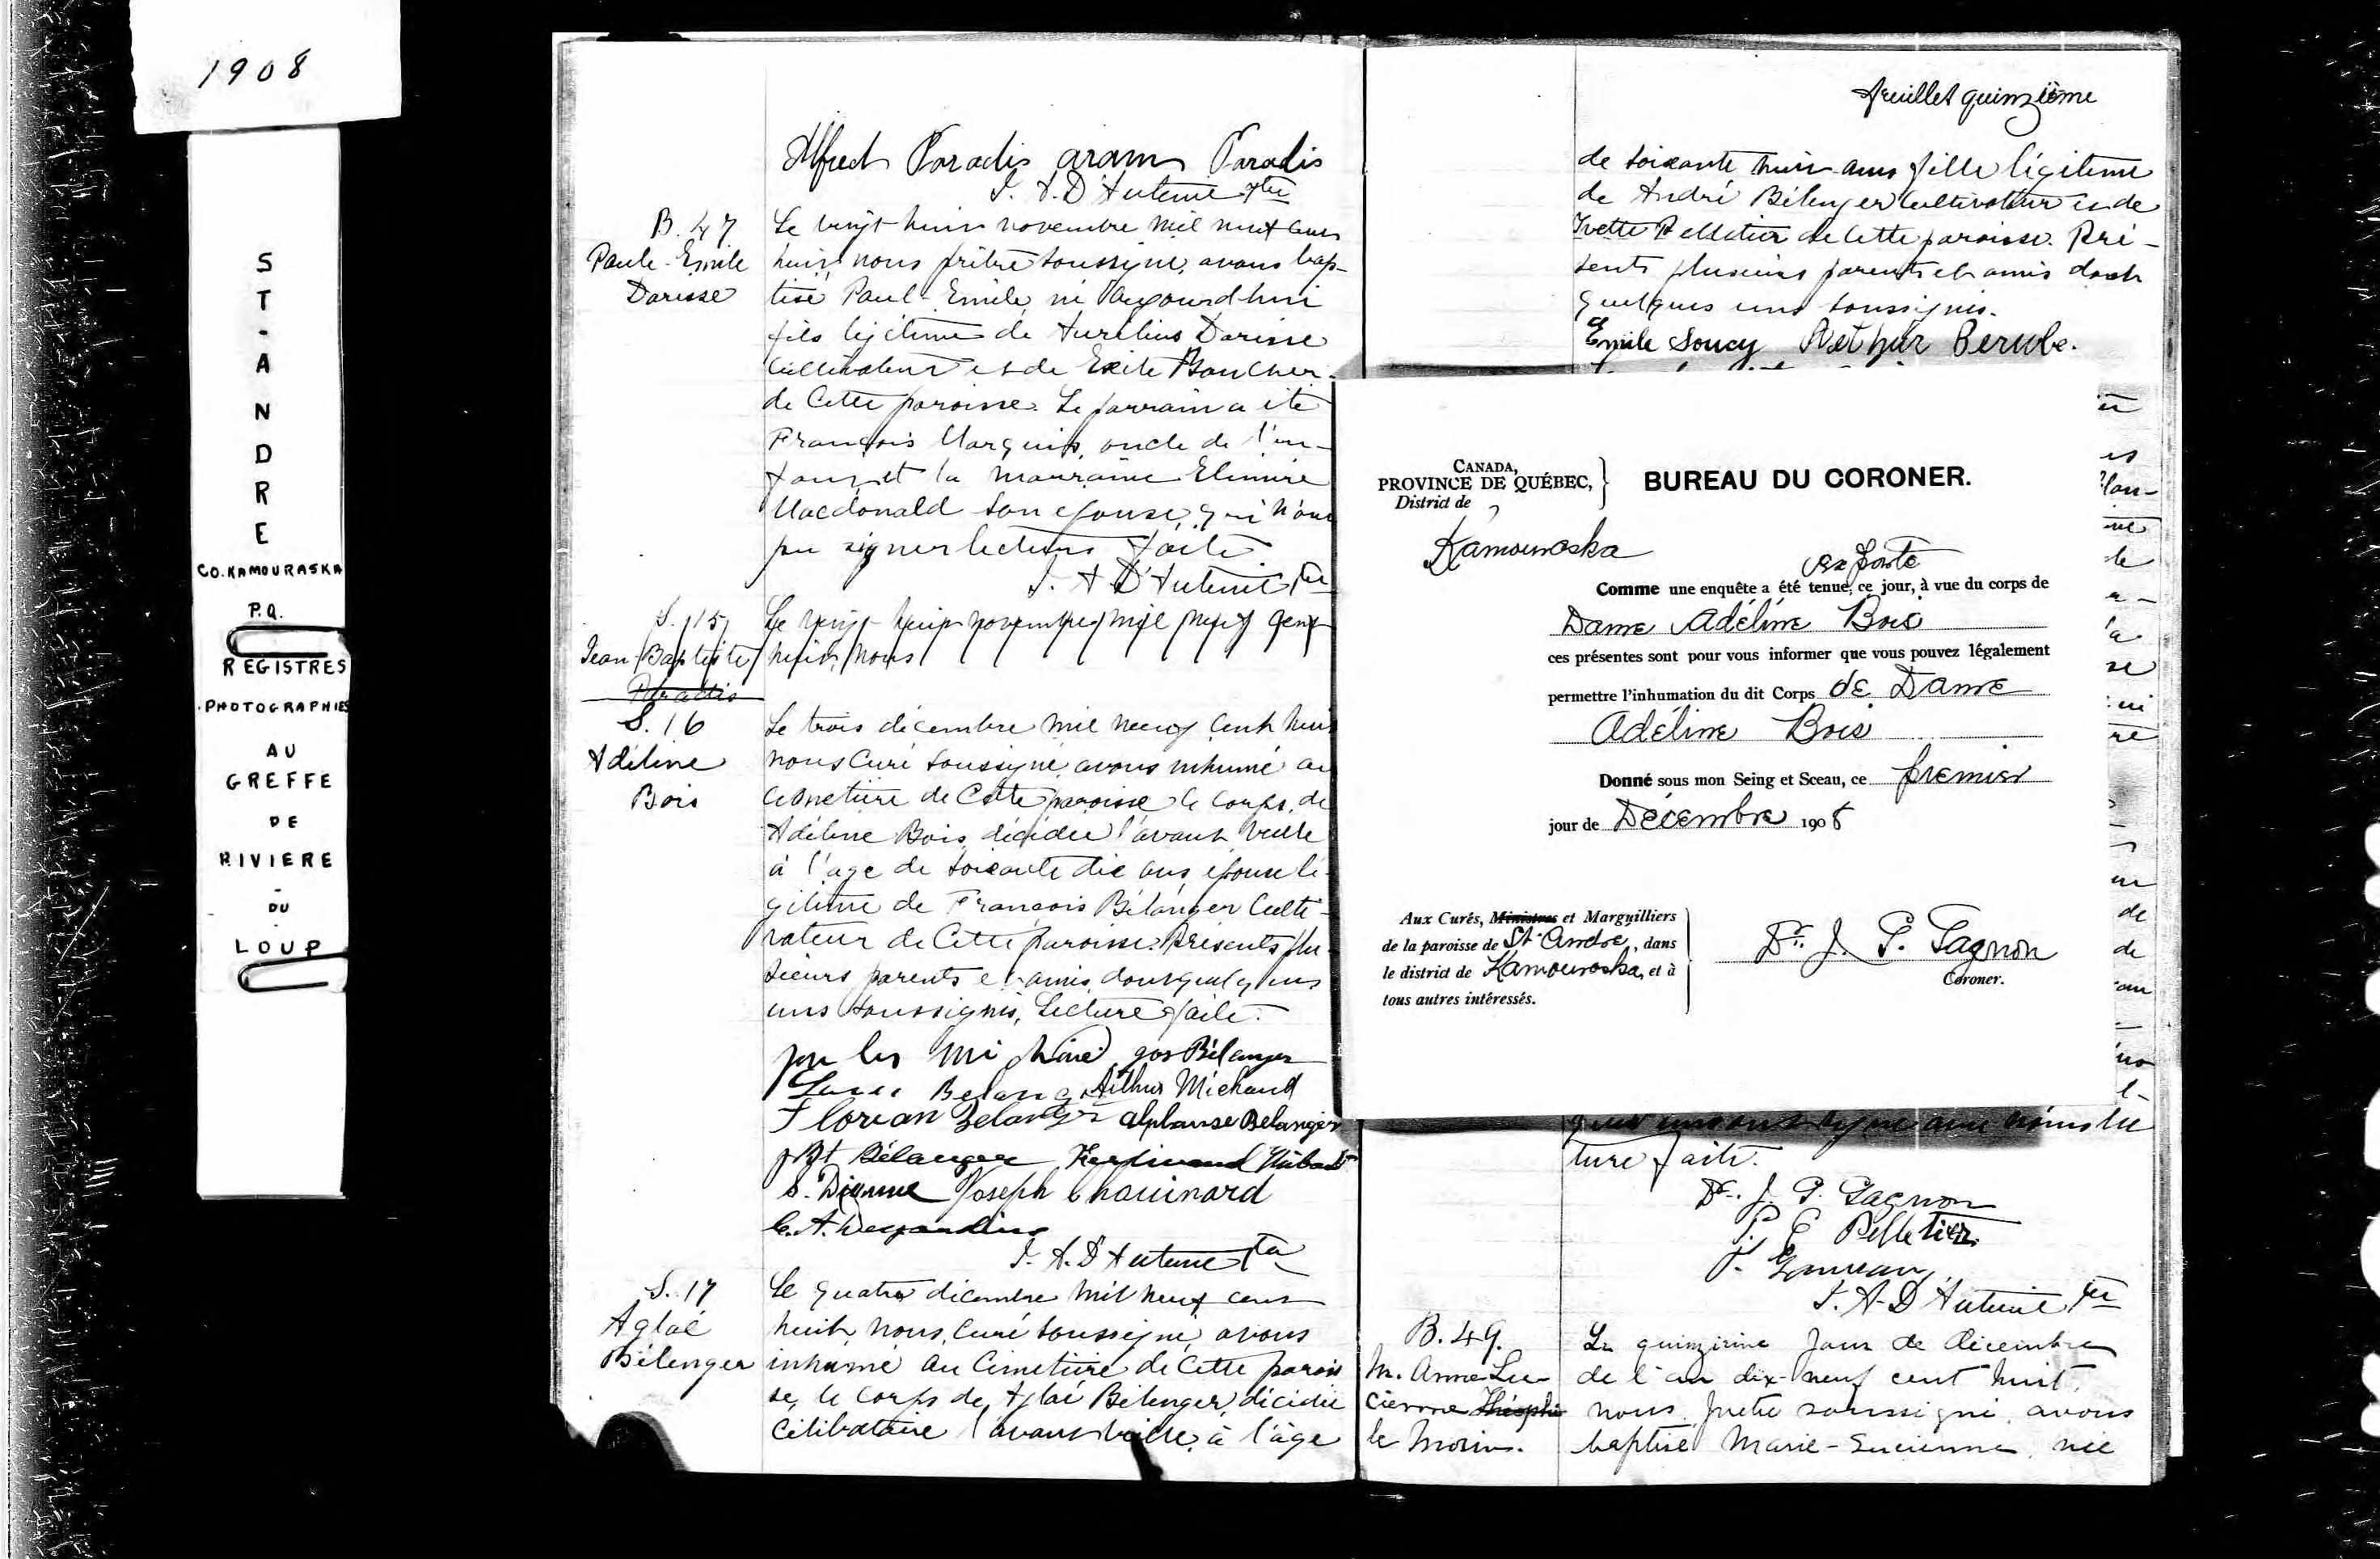 1908
ST-ANDRE
CO. KAMOURASKA
P.Q.
REGISTRES
PHOTOGRAPHIES
AU
GREFFE
DE
RIVIERE
-
DU
LOUP
Alfred Paradis aram Paradis
J. A. D'Auteuil Ptre
B. 47
Paul-Emile
Darisse
Le vingt-huit novembre mil neuf cent
huit, nous prêtre soussigné, avons bap-
tisé Paul-Emile, né aujourd'hui
fils légitime de Aurélius Darisse
cultivateur et de Exile Boucher
de cette paroisse. Le parrain a été
François Marquis, oncle de l'en-
fant, et la marraine Elmire
Macdonald son épouse, qui n'ont
pu signer lecture faite
J. A D'Auteuil Ptre
S. 15
Jean Baptiste
Paradis
Le vingt-huit novembre mil neuf cent
huit, nous
S. 16
Adéline
Bois
Le trois décembre mil neuf cent huit
nous Curé soussigné, avons inhumé au
cimetière de cette paroisse le corps de
Adéline Bois, décédée l'avant veille
à l'age de soixante dix ans, épouse lé-
gitime de François Bélanger Culti-
vateur de cette paroisse. Présents plu-
sieurs parents et amis, dont quelques
uns soussignés, Lecture faite.
Bélanger
Belang Arthur Michaud
Florian Belanger alphonse Belanger
J Bt Bélanger Ferdinand
S. Dionne Joseph Chouinard
C. A. Desjardins
J. A. D'Auteuil Ptre
S. 17
Aglaé
Bélenger
Le quatre décembre mil neuf cent
huit nous, Curé soussigné, avons
inhumé au Cimetière de cette parois
se, le corps de Aglaé Bélenger, décédée
célibataire l'avant veille, à l'âge
feuillet quinzième
de soixante huit ans fille légitime
de André Bélenger cultivateur et de
Ivette Pelletier de cette paroisse. Pré-
sents plusieurs parents et amis dont
quelques uns soussignés.
Emile Soucy Arthur Berube.
CANADA,
PROVINCE DE QUÉBEC,
District de
Kamouraska
BUREAU DU CORONER.
ex parte
Comme une enquête a été tenue, ce jour, à vue du corps de
Dame Adéline Bois
ces présentes sont pour vous informer que vous pouvez légalement
permettre l'inhumation du dit Corps de Dame
Adéline Bois
Donné sous mon Seing et Sceau, ce premier
jour de Décembre 1908
Aux Curés, Ministres et Marguilliers
de la paroisse de St André, dans
le district de Kamouraska, et à
tous autres intéressés.
Dr. J. P. Gagnon
Coroner.
ture faite.
Dr. J. P. Gagnon
P. E Pelletier
J. A. D'Auteuil Ptre
B. 49.
M. Anne Lu-
cienne Théophi
le Morin.
Le quinzième jour de décembre
de l'an dix-neuf cent huit,
nous, prêtre soussigné, avons
baptisé Marie-Lucienne, née